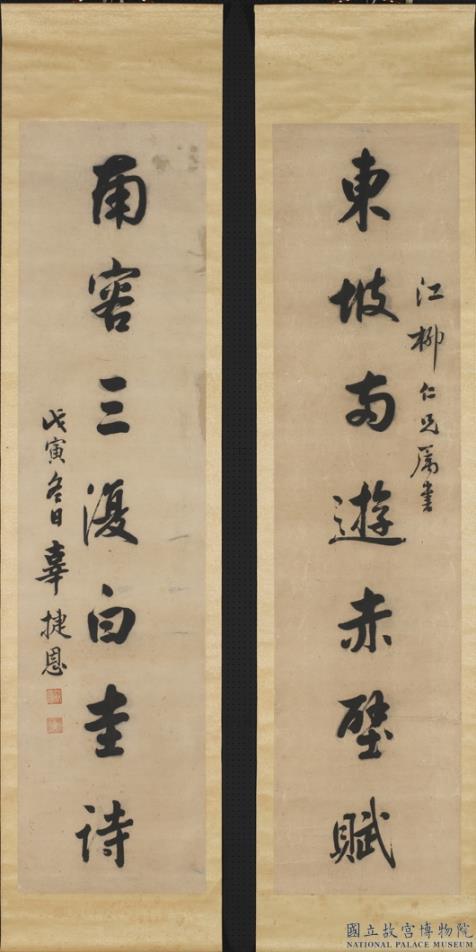 東坡兩遊赤壁賦
江柳仁兄屬書
南容三復白圭詩
戊寅冬日辜捷恩
國立故宮博物院
NATIONAL PALACE MUSEUM